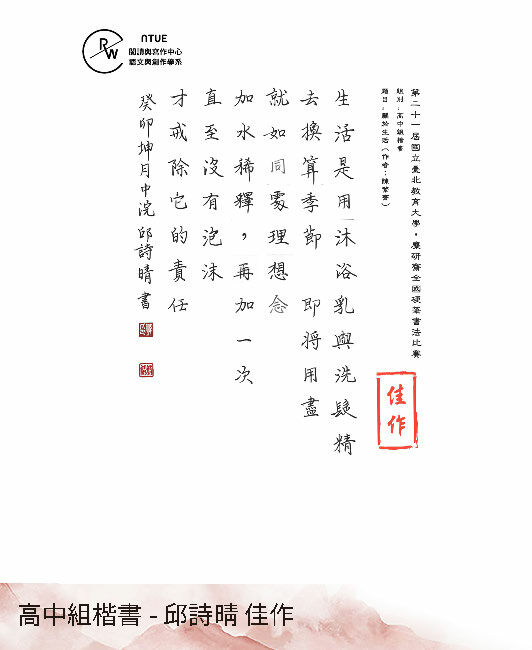 RW
NTUE
閱讀與寫作中心
語文與創作學系
第二十一屆國立臺北教育大學‧麋研齋全國硬筆書法比賽
組別：高中組楷書
題目：關於生活（作者：陳繁齊）
生活是用沐浴乳與洗髮精
去換算季節 即將用盡
就如同處理想念
加水稀釋，再加一次
直至沒有泡沫
才戒除它的責任
癸卯坤月中浣 邱詩晴書
佳作
高中組楷書 - 邱詩晴 佳作